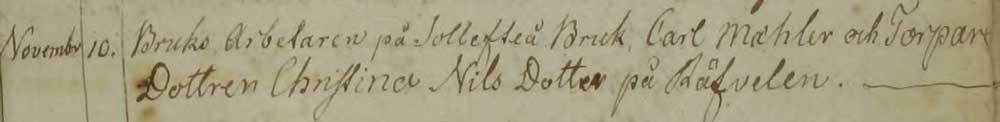 Novembr 10. Bruks Arbetaren på Sollefteå Bruk, Carl Mæhler och Torpare
Dottren Christina Nils Dotter på Räfvelen.